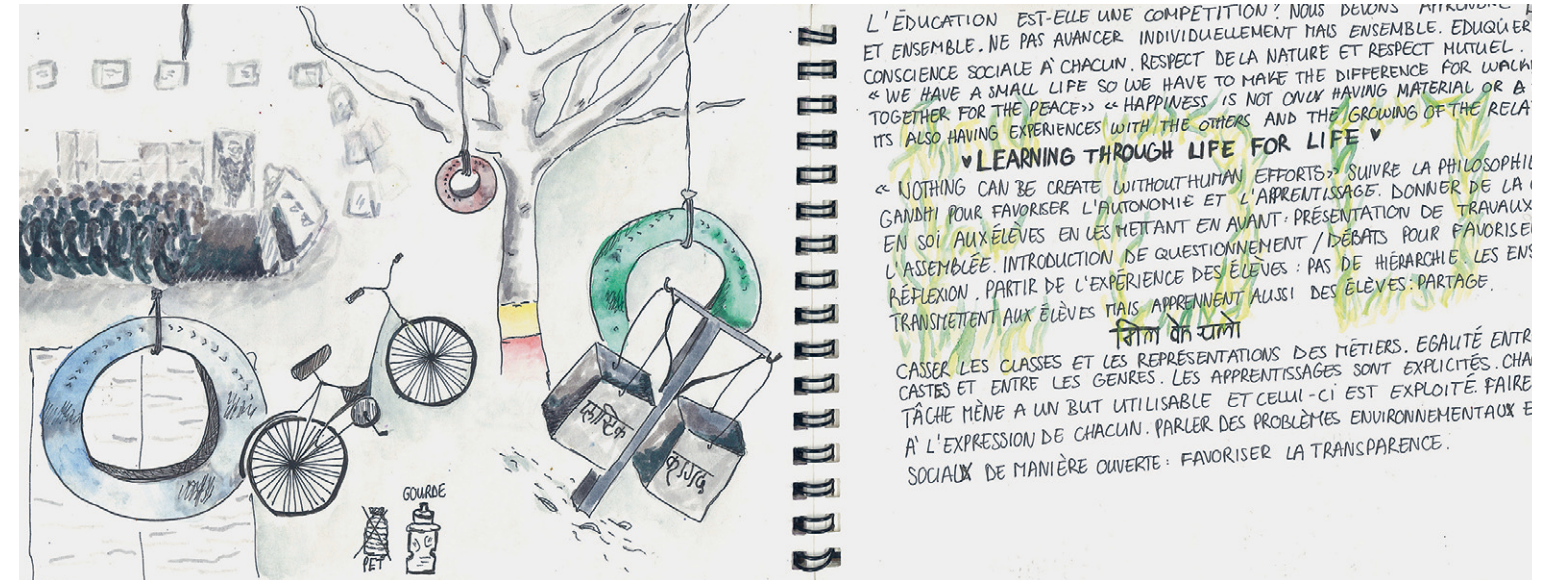 GOURDE
PET
प्लास्टिक
कागज़
L'ÉDUCATION EST-ELLE UNE COMPÉTITION? NOUS DEVONS APPRENDRE
ET ENSEMBLE. NE PAS AVANCER INDIVIDUELLEMENT MAIS ENSEMBLE. EDUQUER
CONSCIENCE SOCIALE À CHACUN. RESPECT DE LA NATURE ET RESPECT MUTUEL.
« WE HAVE A SMALL LIFE SO WE HAVE TO MAKE THE DIFFERENCE FOR
TOGETHER FOR THE PEACE» « HAPPINESS IS NOT ONLY HAVING MATERIAL OR A
ITS ALSO HAVING EXPERIENCES WITH THE OTHERS AND THE GROWING OF THE
♥LEARNING THROUGH LIFE FOR LIFE ♥
« NOTHING CAN BE CREATE WITHOUT HUMAN EFFORTS» SUIVRE LA PHILOSOPHIE
GANDHI POUR FAVORISER L'AUTONOMIE ET L'APPRENTISSAGE. DONNER DE LA
EN SOI AUX ÉLÈVES EN LES METTANT EN AVANT: PRÉSENTATION DE TRAVAUX
L'ASSEMBLÉE. INTRODUCTION DE QUESTIONNEMENT / DÉBATS POUR FAVORISER
RÉFLEXION. PARTIR DE L'EXPÉRIENCE DES ÉLÈVES: PAS DE HIÉRARCHIE. LES
TRANSMETTENT AUX ÉLÈVES MAIS APPRENNENT AUSSI DES ÉLÈVES. PARTAGE.
मिल के चलो
CASSER LES CLASSES ET LES REPRÉSENTATIONS DES MÉTIERS. EGALITÉ ENTRE
CASTES ET ENTRE LES GENRES. LES APPRENTISSAGES SONT EXPLICITÉS.
TÂCHE MÈNE A UN BUT UTILISABLE ET CELUI-CI EST EXPLOITÉ. FAIRE
À L'EXPRESSION DE CHACUN. PARLER DES PROBLÈMES ENVIRONNEMENTAUX
SOCIAUX DE MANIÈRE OUVERTE: FAVORISER LA TRANSPARENCE.